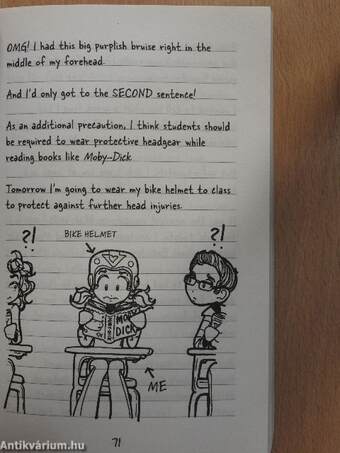 OMG! I had this big purplish bruise right in the
middle of my forehead.
And I'd only got to the SECOND sentence!
As an additional precaution, I think students should
be required to wear protective headgear while
reading books like Moby-Dick.
Tomorrow I'm going to wear my bike helmet to class
to protect against further head injuries.
?!
BIKE HELMET
?!
MOBY
DICK
ME
71
Antikvárium.hu